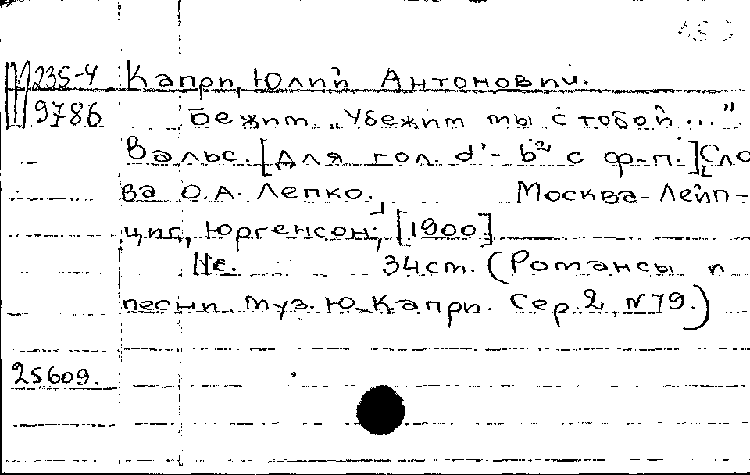 М 235-4 Капри, Юлий Антонович.
9786 Бежим. „Убежим мы с тобой..."
Вальс. [Для гол. d'- b² с ф-п.] Сло
ва О.А. Лепко. Москва-Лейп-
циг, Юргенсон, [1900]
34 cm. (Романсы и
песни. муз. Ю. Капри. Сер. 2, N 79.)
25609.